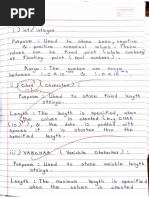 i) int/integer
Purpose : Used to store zero, negative
& positive numeral values. These
values can be fixed point (whole numbers)
or floating point (real numbers).
Range : The number can range
between
Char (Character) :
Purpose : Used to store fixed length
strings.
Length : The length is specified when
the
is specified in the CHAR
& the data is padded with
spaces if it is shorter than the
specified length.
iii) VARCHAR (Variable Character) :
Purpose : Used to store variable length
strings.
Length : Maximum length is specified
when the column is created